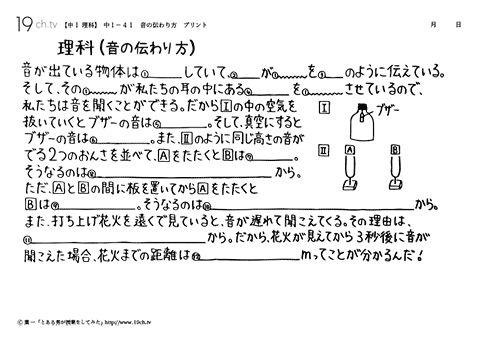 19ch.tv 【中1 理科】 中1-41 音の伝わり方 プリント 月 日
理科(音の伝わり方)
音が出ている物体は①していて、②が①を③のように伝えている。
そして、その①が私たちの耳の中にある④を①させているので、
私たちは音を聞くことができる。だからⅠの中の空気を
抜いていくとブザーの音は⑤。そして、真空にすると
ブザーの音は⑥。また、Ⅱのように同じ高さの音が
でる2つのおんさを並べて、AをたたくとBは⑦。
そうなるのは⑧から。
ただ、AとBの間に板を置いてからAをたたくと
Bは⑨。そうなるのは⑩から。
また、打ち上げ花火を遠くで見ていると、音が遅れて聞こえてくる。その理由は、
⑪から。だから、花火が見えてから3秒後に音が
聞こえた場合、花火までの距離は⑫mってことが分かるんだ!
Ⅰ ブザー
Ⅱ A B
© 葉一「とある男が授業をしてみた」http://www.19ch.tv